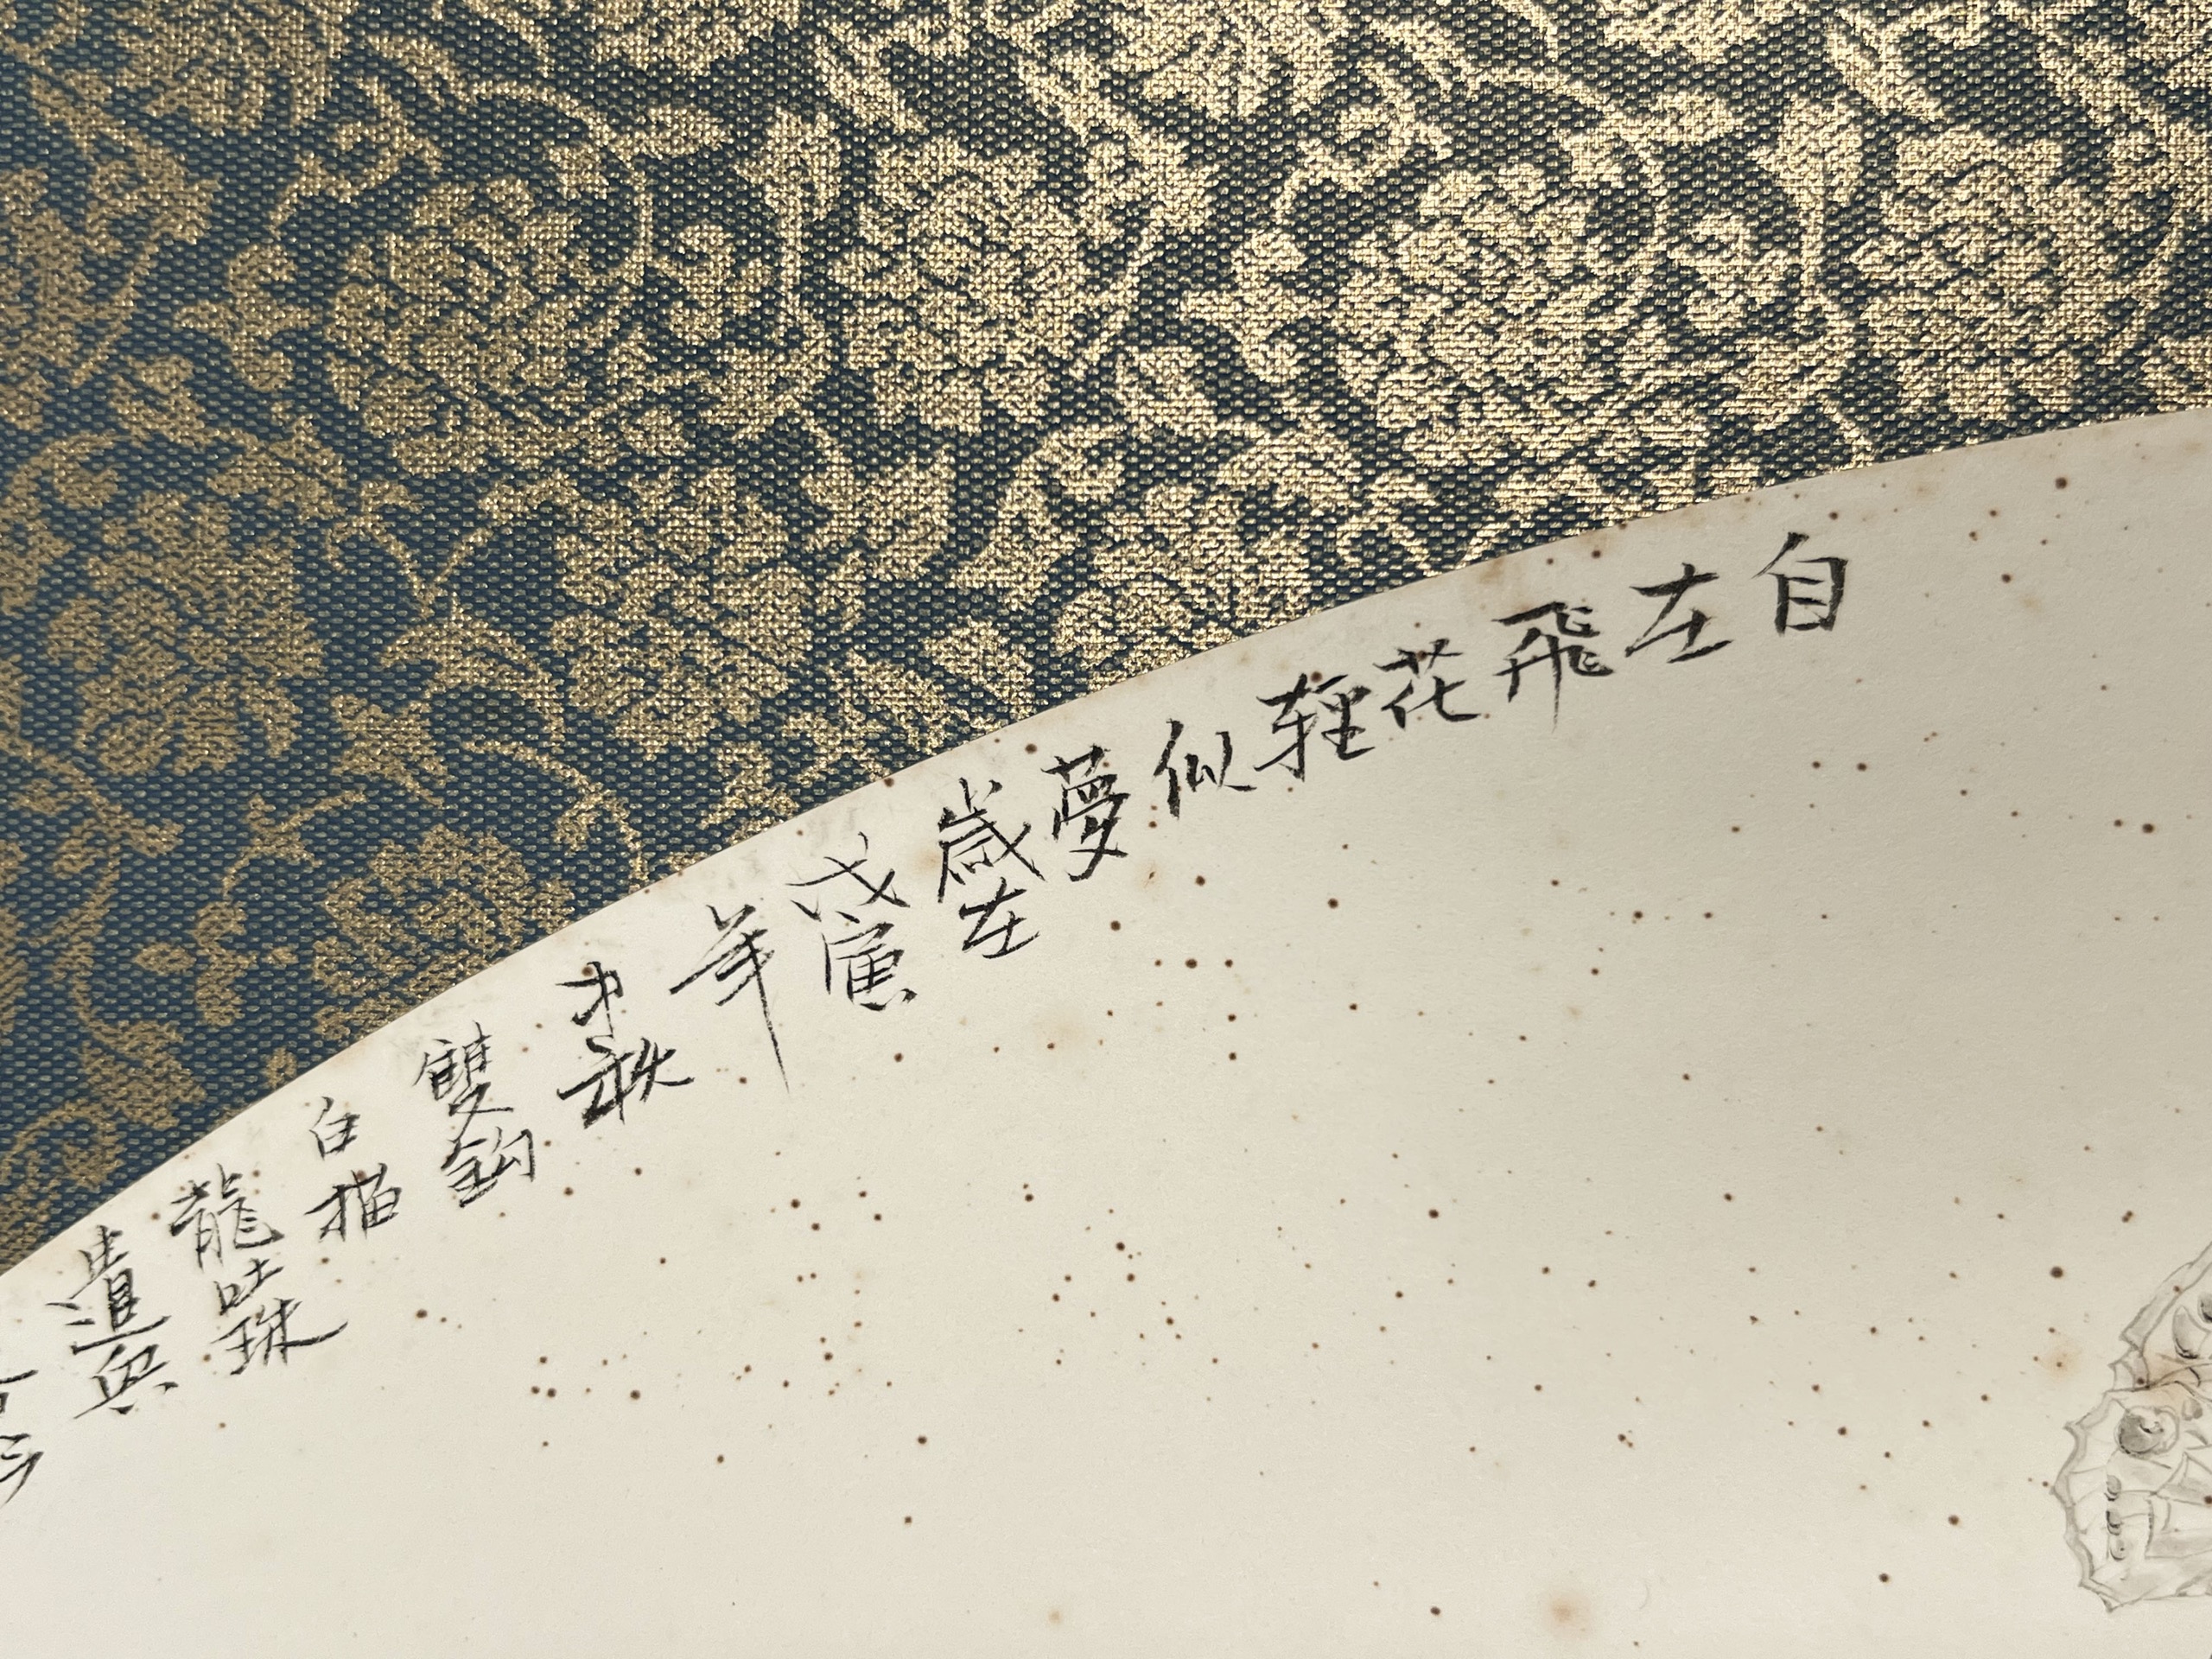 自
在
飛
花
輕
似
夢
歲在
戊寅
年
中秋
雙鈎
白描
龍吐珠
遣興